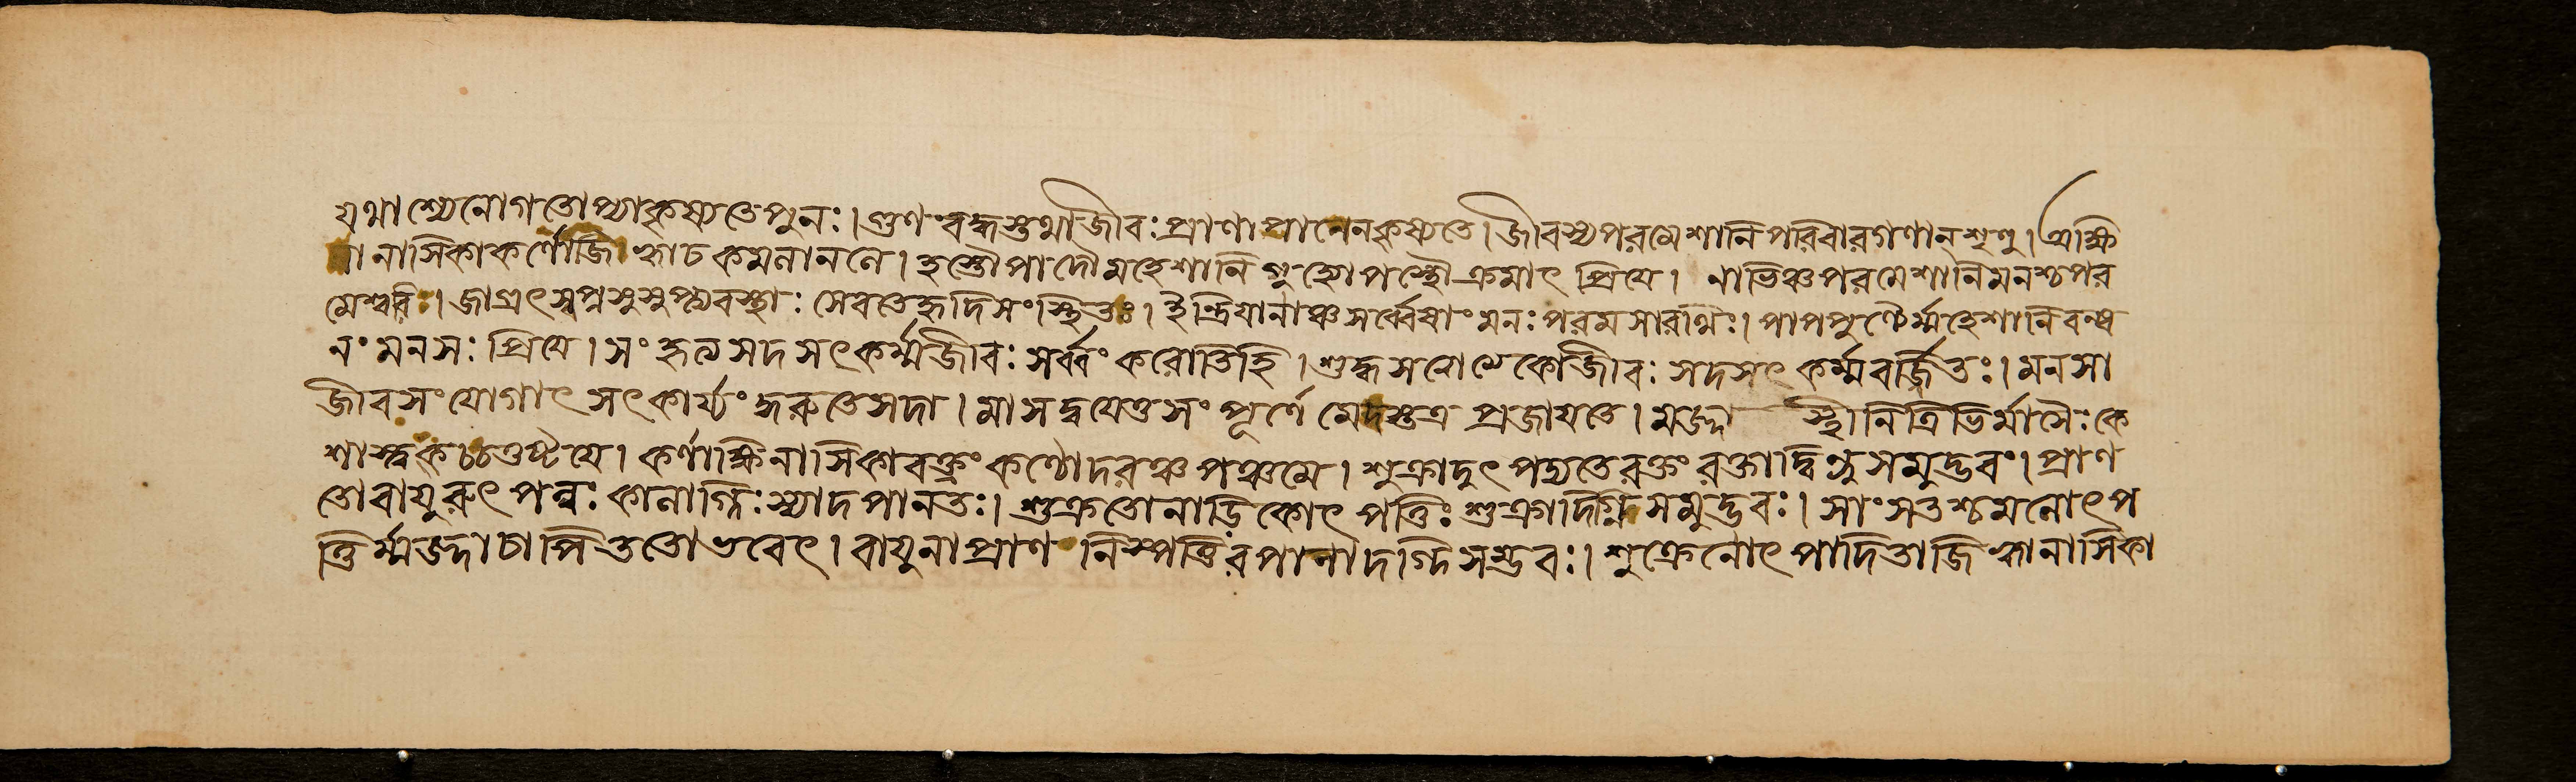 যথাশ্যেনোগতোপ্যাকৃষ্যতেপুনঃ।গুণবদ্ধস্তথাজীবঃপ্রাণাপানেনকৃষ্যতে।জীবস্যপরমেশানিপরিবারগণানশৃণু।অক্ষি
নাসিকাকর্ণৌজিহ্বাচকমলাননে।হস্তৌপাদৌমহেশানিগুহ্যোপস্থৌক্রমাৎপ্রিযে।নাভিঞ্চপরমেশানিমনশ্চপর
মেশ্বরি।জাগ্রৎস্বপ্নসুসুপ্ত্যবস্থাঃসেবতেহৃদিসংস্থিতঃ।ইন্দ্রিযানাঞ্চসর্ব্বেষাংমনঃপরমসারথিঃ।পাপপুণ্যৈর্ম্মহেশানিবন্ধ
নংমনসঃপ্রিযে।সংহৃত্যসদসৎকর্ম্মজীবঃসর্ব্বংকরোতিহি।শুদ্ধসত্ত্বোজীবঃসদসৎকর্ম্মবর্জ্জিতঃ।মনসা
জীবসংযোগাৎসৎকার্য্যংকুরুতেসদা।মাসদ্বযেতুসংপূর্ণেমেদস্তত্রপ্রজাযতে।মজ্জাস্থীনিত্রিভির্মাসৈঃকে
শাস্ত্বক্চচতুষ্টযে।কর্ণাক্ষিনাসিকাবক্ত্রংকণ্ঠোদরঞ্চপঞ্চমে।শুক্রাদুৎপদ্যতেরক্তংরক্তাদ্বিন্দুসমুদ্ভবং।প্রাণ
তোবাযুরুৎপন্নঃকালাগ্নিঃস্যাদপানতঃ।শুক্রতোনাড়িকোৎপত্তিঃশুক্রাদগ্নিসমুদ্ভবঃ।মাংসতশ্চমনোৎপ
ত্তির্ম্মজ্জাচাপিততোভবেৎ।বাযুনাপ্রাণনিস্পত্তিরপানাদগ্নিসম্ভবঃ।শুক্রেনোৎপাদিতাজিহ্বানাসিকা